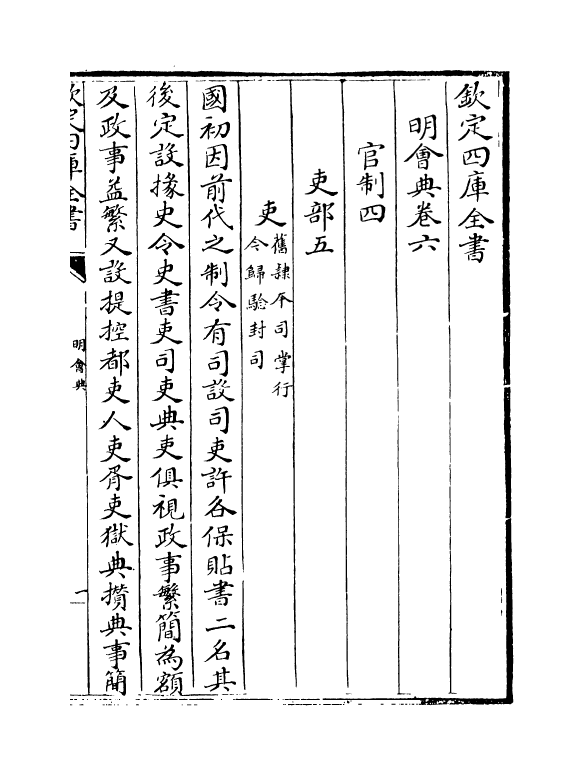 欽定四庫全書
明會典卷六
官制四
吏部五
吏
舊隷不司掌行
今歸驗封司
國初因前代之制令有司設司吏許各保貼書二名其
後定設掾史令史書吏司吏典吏俱視政事繁簡為額
及政事益繁又設提控都吏人吏胥吏獄典攢典事簡
欽定四庫全書
明會典
一